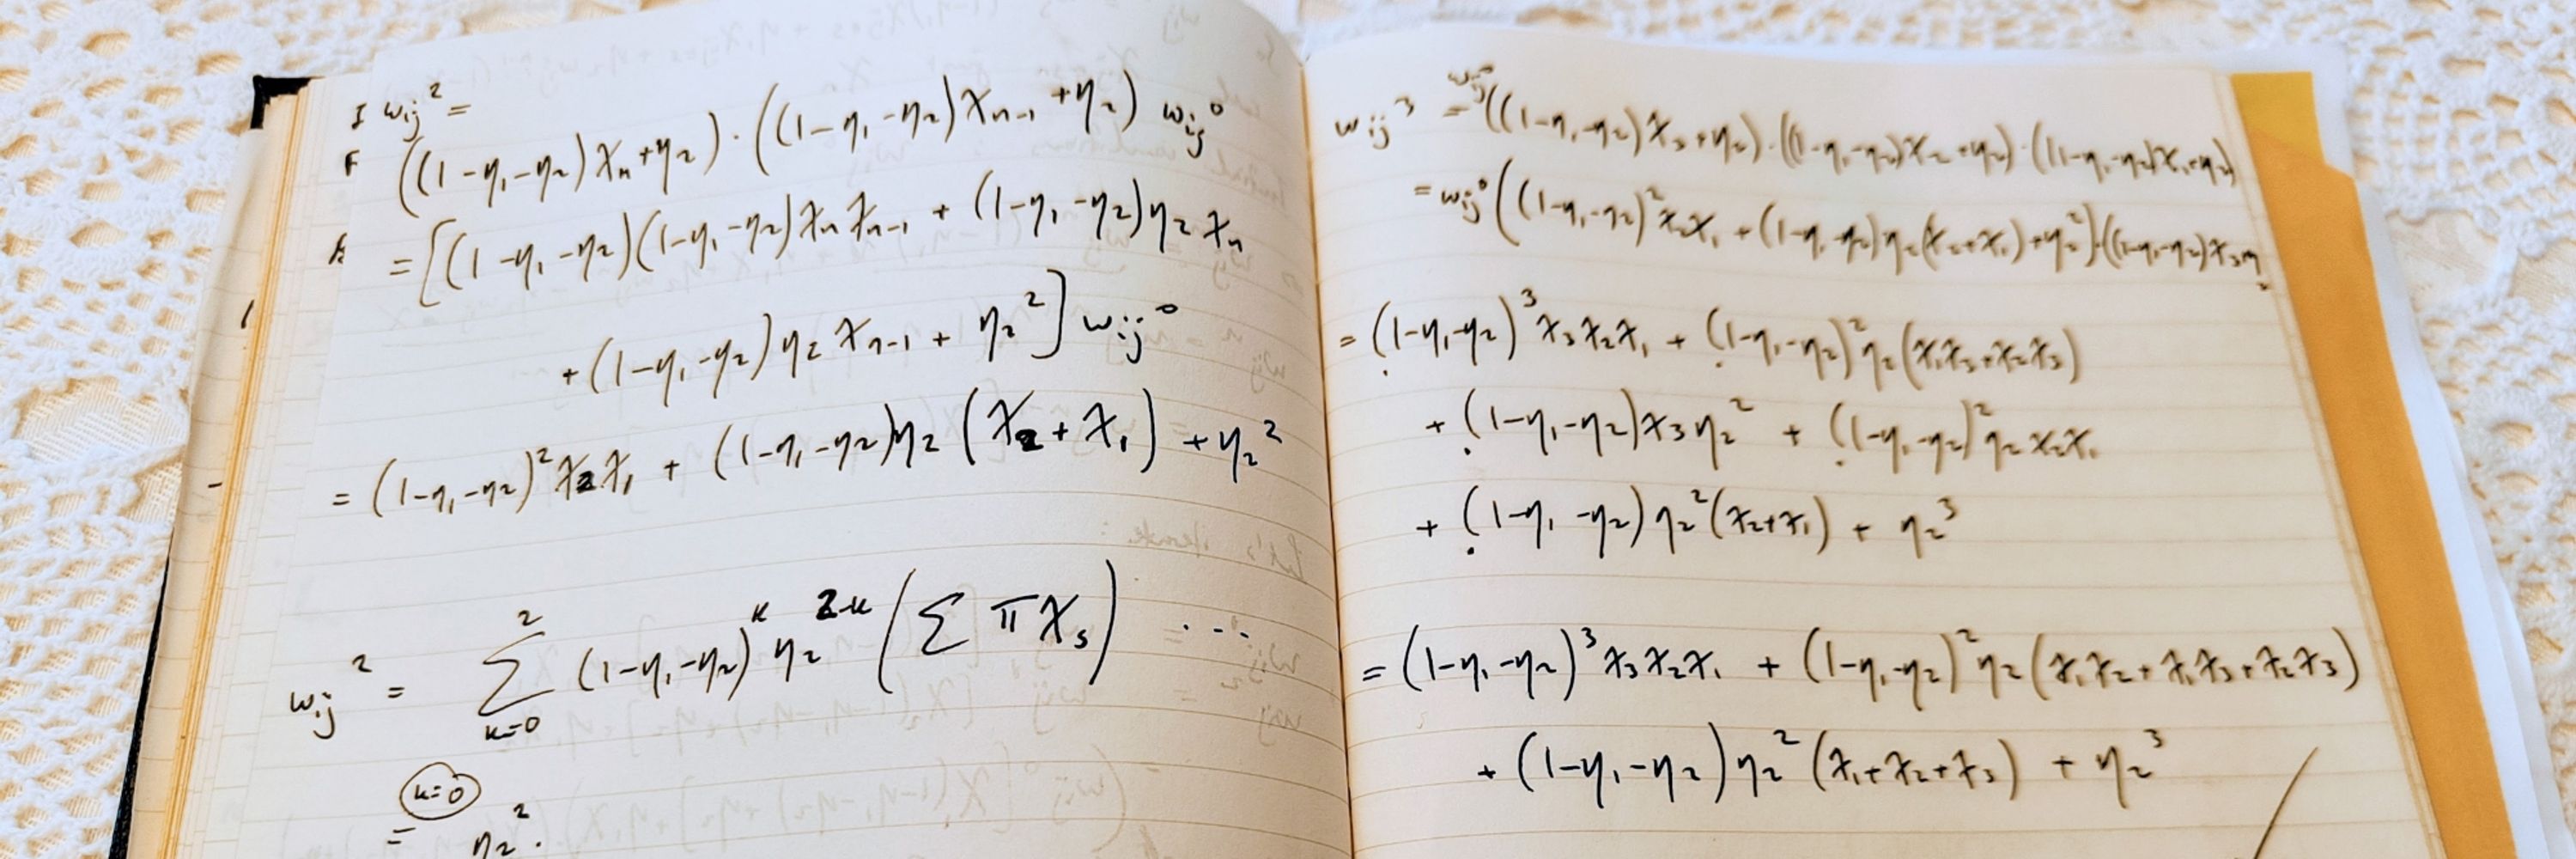 I w_ij^2 =
F ((1-η_1-η_2)χ_n+η_2)·((1-η_1-η_2)χ_{n-1}+η_2) w_ij^0
= [(1-η_1-η_2)(1-η_1-η_2)χ_n χ_{n-1} + (1-η_1-η_2)η_2 χ_n
+(1-η_1-η_2)η_2 χ_{n-1} + η_2^2] w_ij^0
= (1-η_1-η_2)^2 χ_2 χ_1 + (1-η_1-η_2)η_2 (χ_2+χ_1) + η_2^2
w_ij^2 = Σ_{k=0}^{2} (1-η_1-η_2)^k η_2^{2-k} (Σ π χ_s) ...
k=0
= η_2^2.
w_ij^3 = w_ij^0((1-η_1-η_2)χ_3+η_2)·((1-η_1-η_2)χ_2+η_2)·((1-η_1-η_2)χ_1+η_2)
= w_ij^0((1-η_1-η_2)^2 χ_2χ_1 + (1-η_1-η_2)η_2(χ_2+χ_1)+η_2^2)·((1-η_1-η_2)χ_3 η_2
= (1-η_1-η_2)^3 χ_3χ_2χ_1 + (1-η_1-η_2)^2 η_2(χ_1χ_3+χ_2χ_3)
+ (1-η_1-η_2)χ_3 η_2^2 + (1-η_1-η_2)^2 η_2 χ_2χ_1
+ (1-η_1-η_2) η_2^2(χ_2+χ_1) + η_2^3
= (1-η_1-η_2)^3 χ_3χ_2χ_1 + (1-η_1-η_2)^2 η_2(χ_1χ_2+χ_1χ_3+χ_2χ_3)
+ (1-η_1-η_2)η_2^2(χ_1+χ_2+χ_3) + η_2^3